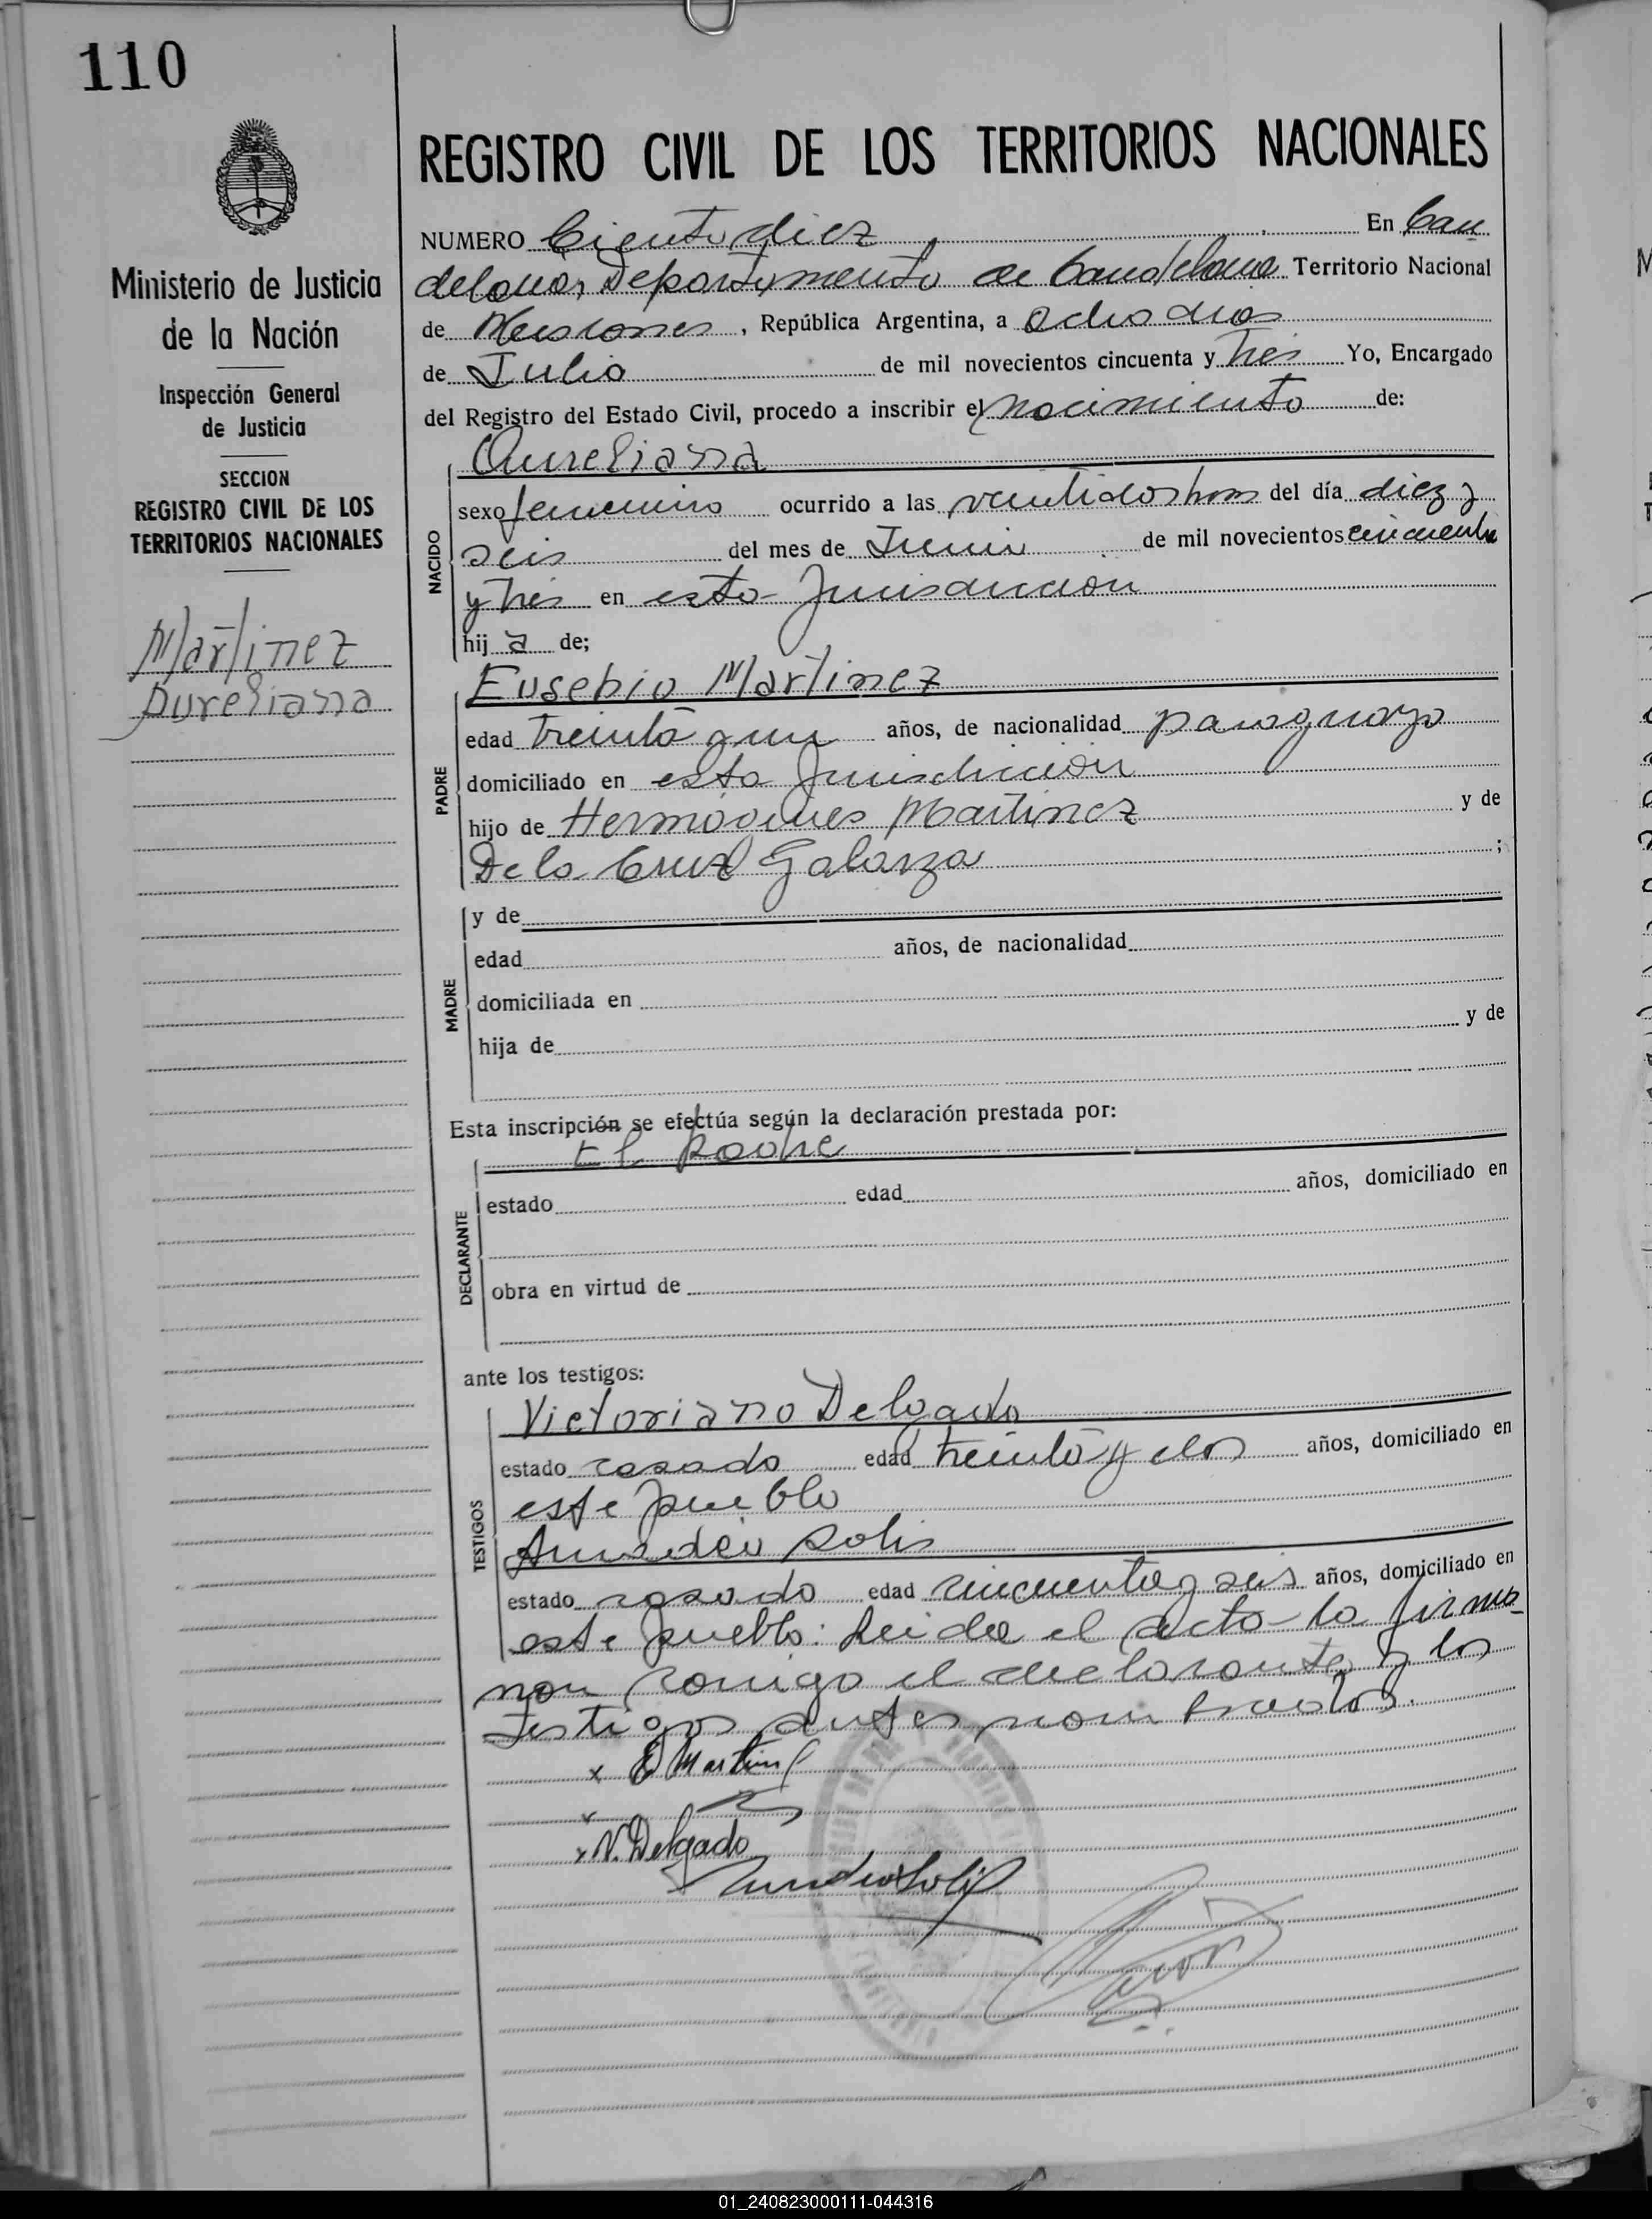 110
REGISTRO CIVIL DE LOS TERRITORIOS NACIONALES
Ministerio de Justicia
de la Nación
Inspección General
de Justicia
SECCION
REGISTRO CIVIL DE LOS
TERRITORIOS NACIONALES
Martinez
Aureliana
NUMERO Ciento diez En Can
delaria, Departamento de Candelaria Territorio Nacional
de Misiones, República Argentina, a ocho dias
de Julio de mil novecientos cincuenta y tres Yo, Encargado
del Registro del Estado Civil, procedo a inscribir el nacimiento de:
Aureliana
NACIDO
sexo femenino ocurrido a las veintidos horas del día diez y
seis del mes de Junio de mil novecientos cincuenta
y tres en esta Jurisdiccion
hij a de;
Eusebio Martinez
PADRE
edad treinta y un años, de nacionalidad paraguayo
domiciliado en esta Jurisdiccion
hijo de Hermógenes Martinez y de
De la Cruz Galarza ;
MADRE
y de
edad años, de nacionalidad
domiciliada en
hija de y de
Esta inscripción se efectúa según la declaración prestada por:
El padre
DECLARANTE
estado edad años, domiciliado en
obra en virtud de
ante los testigos:
TESTIGOS
Victoriano Delgado
estado casado edad treinta y dos años, domiciliado en
este pueblo
Amadeo Solis
estado casado edad cincuenta y seis años, domiciliado en
este pueblo: Leida el acta la firma
ron conmigo el declarante y los
testigos antes nombrados.
x E Martinez
x V. Delgado
Amadeo Solis
01_240823000111-044316